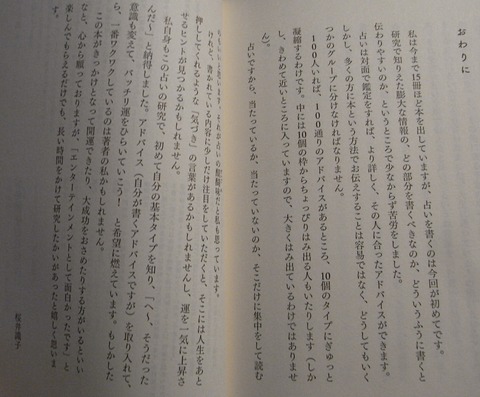 おわりに
私は今まで15冊ほど本を出していますが、占いを書くのは今回が初めてです。
研究で知りえた膨大な情報の、どの部分を書くべきなのか、どういうふうに書くと
伝わりやすいのか、というところで少なからず苦労をしました。
占いは対面で鑑定をすれば、より詳しく、その人に合ったアドバイスができます。
しかし、多くの方に本という方法でお伝えすることは容易ではなく、どうしてもいく
つかのグループに分けなければなりません。
100人いれば、100通りのアドバイスがあるところ、10個のタイプにぎゅっと
凝縮するわけです。中には10個の枠からちょっぴりはみ出る人もいたりします（しか
し、きわめて近いところに入っていますので、大きくはみ出ているわけではありませ
ん）。
占いですから、当たっているか、当たっていないのか、そこだけに集中をして読む
だと私も思っています。
けれど、書かれている内容に少しだけ注目をしていただくと、そこには人生をあと
押ししてくれるような「気づき」の言葉があるかもしれませんし、運を一気に上昇さ
せるヒントが見つかるかもしれません。
私自身もこの占いの研究で、初めて自分の基本タイプを知り、「へー、そうだった
んだ〜」と納得しました。アドバイス（自分が書くアドバイスですが）を取り入れて、
意識も変えて、バッチリ運をひらいていこう！　と希望に燃えています。もしかした
ら、一番ワクワクしているのは著者の私かもしれません。
この本がきっかけとなって開運できたり、大成功をおさめたりする方がいるといい
なと、心から願っておりますが、「エンターテイメントとして面白かったです」と
楽しんでもらえるだけでも、長い時間をかけて研究したかいがあったと嬉しく思いま
す。
桜井識子